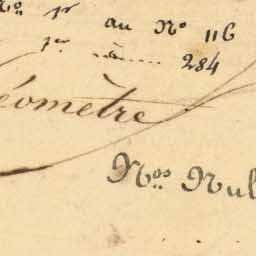 No. 1er au No 116
1er id.... 284
éomètre
Nos Nul